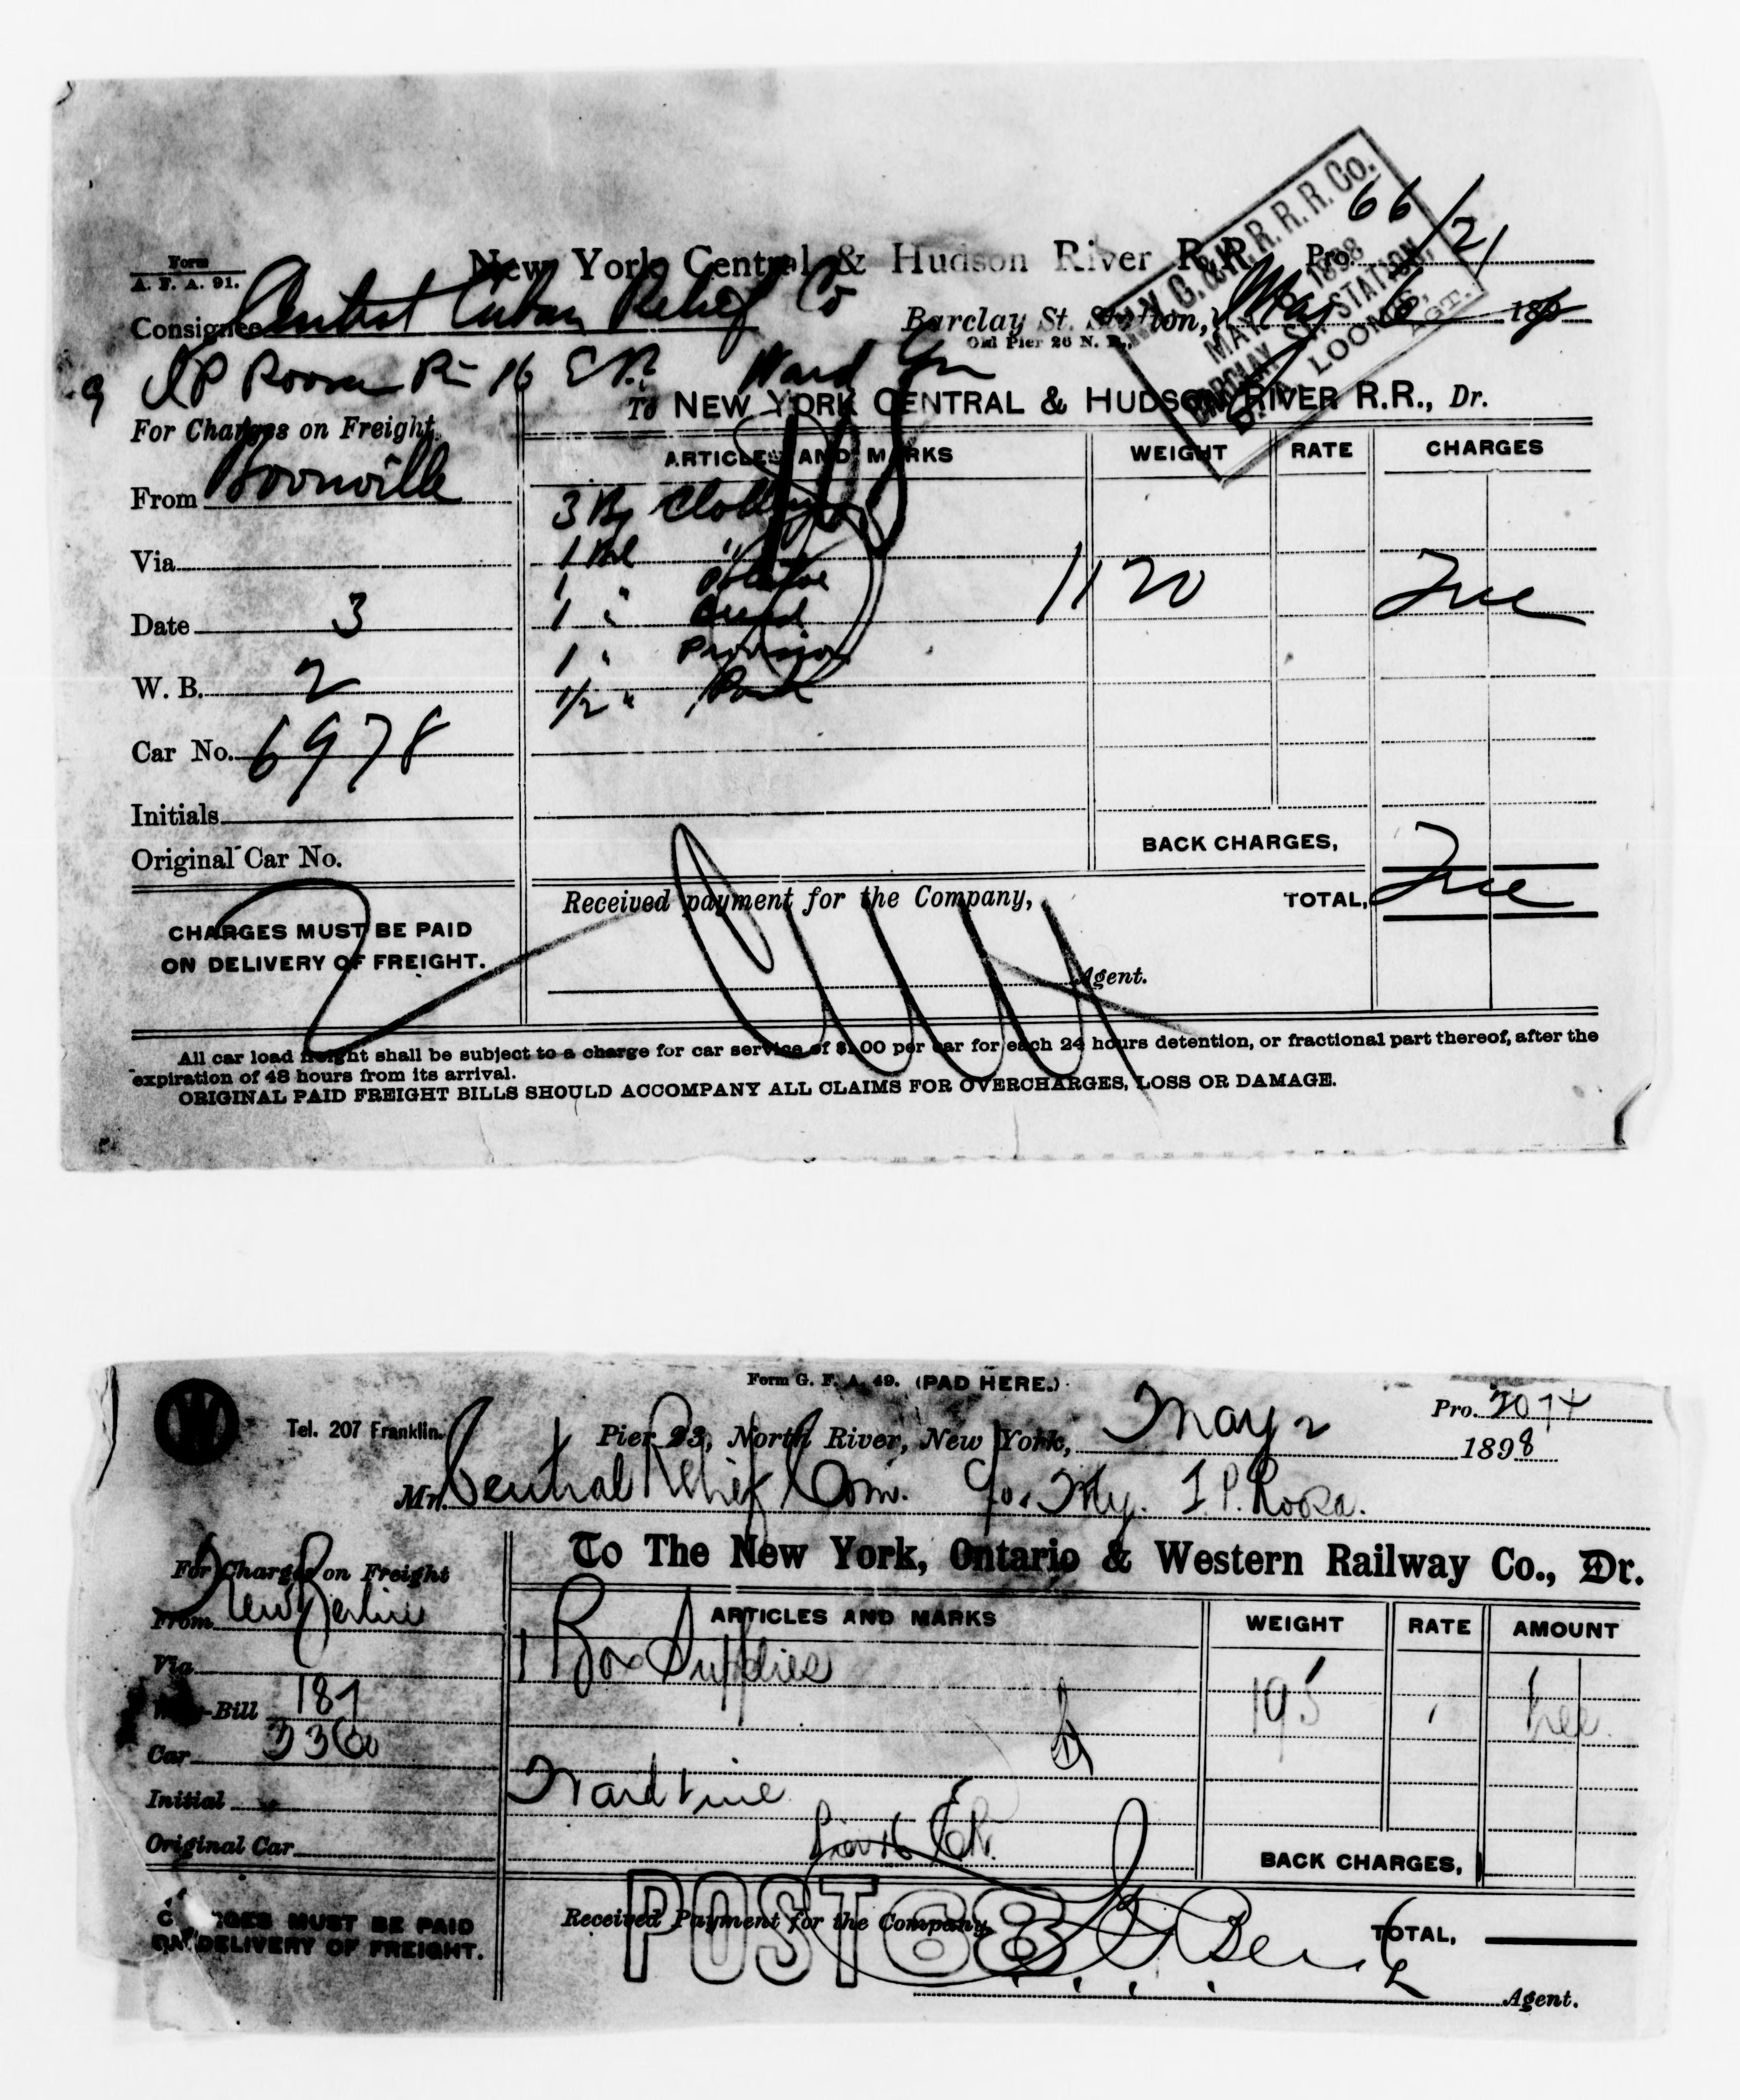 Form
A. F. A. 91.
New York Central & Hudson River R.R. Pro. 66/21
Consignee Central Cuban Relief Co
Barclay St. Station, May 6 189
Old Pier 26 N. R.,
N. Y. C. & H. R. R. R. Co.
MAY 6 1898
BARCLAY ST. STATION,
LOOMIS, AGT.
J P Roosa Pr 16 E R. Ward Ln
To NEW YORK CENTRAL & HUDSON RIVER R.R., Dr.
For Charges on Freight
ARTICLES AND MARKS WEIGHT RATE CHARGES
From Boonville
3 Bx Clothing
Via
1 Bbl "
1 " Potatoe
1120 Free
Date 3
1 "
1 " Provision
W. B. 2
1/2 " Pork
Car No. 6978
Initials
BACK CHARGES,
Original Car No.
Received payment for the Company,
TOTAL, Free
CHARGES MUST BE PAID
ON DELIVERY OF FREIGHT.
Agent.
All car load freight shall be subject to a charge for car service of $1.00 per car for each 24 hours detention, or fractional part thereof, after the
expiration of 48 hours from its arrival.
ORIGINAL PAID FREIGHT BILLS SHOULD ACCOMPANY ALL CLAIMS FOR OVERCHARGES, LOSS OR DAMAGE.
Form G. F. A. 49. (PAD HERE.)
Pro. 2074
Tel. 207 Franklin.
Pier 23, North River, New York, May 2 1898
Mr. Central Relief Com. c/o Mr. J. P. Roosa.
To The New York, Ontario & Western Railway Co., Dr.
For Charges on Freight
From New Berlin
ARTICLES AND MARKS WEIGHT RATE AMOUNT
1 Box Supplies
Via
195 free
Way-Bill 187
Car 3360
Ward Line
Initial
Pier 16 E.R.
Original Car
BACK CHARGES,
POST 68
Received Payment for the Company,
TOTAL,
CHARGES MUST BE PAID
ON DELIVERY OF FREIGHT.
Agent.